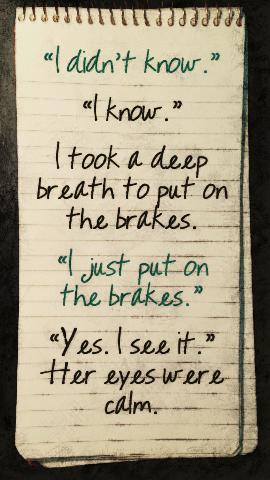 “I didn't know.”
“I know.”
I took a deep
breath to put on
the brakes.
“I just put on
the brakes.”
“Yes. I see it.”
Her eyes were
calm.